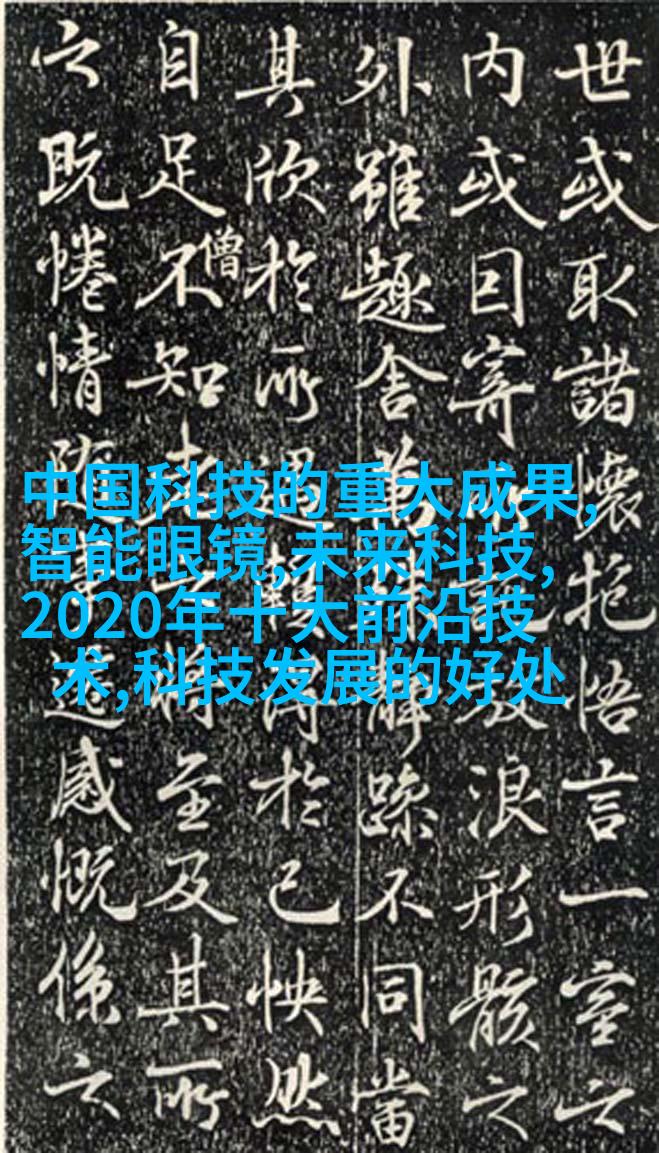 中国科技的重大成果,
智能眼镜,未来科技,
2020年十大前沿技
术,科技发展的好处
世或取諸懷抱悟言一室之
内或因寄浪形骸之
外雖趣舍萬躁不同當
其欣於所遇得於己怏然
自足不知老將至及其所
僧
之既惓情随事遷感慨係之